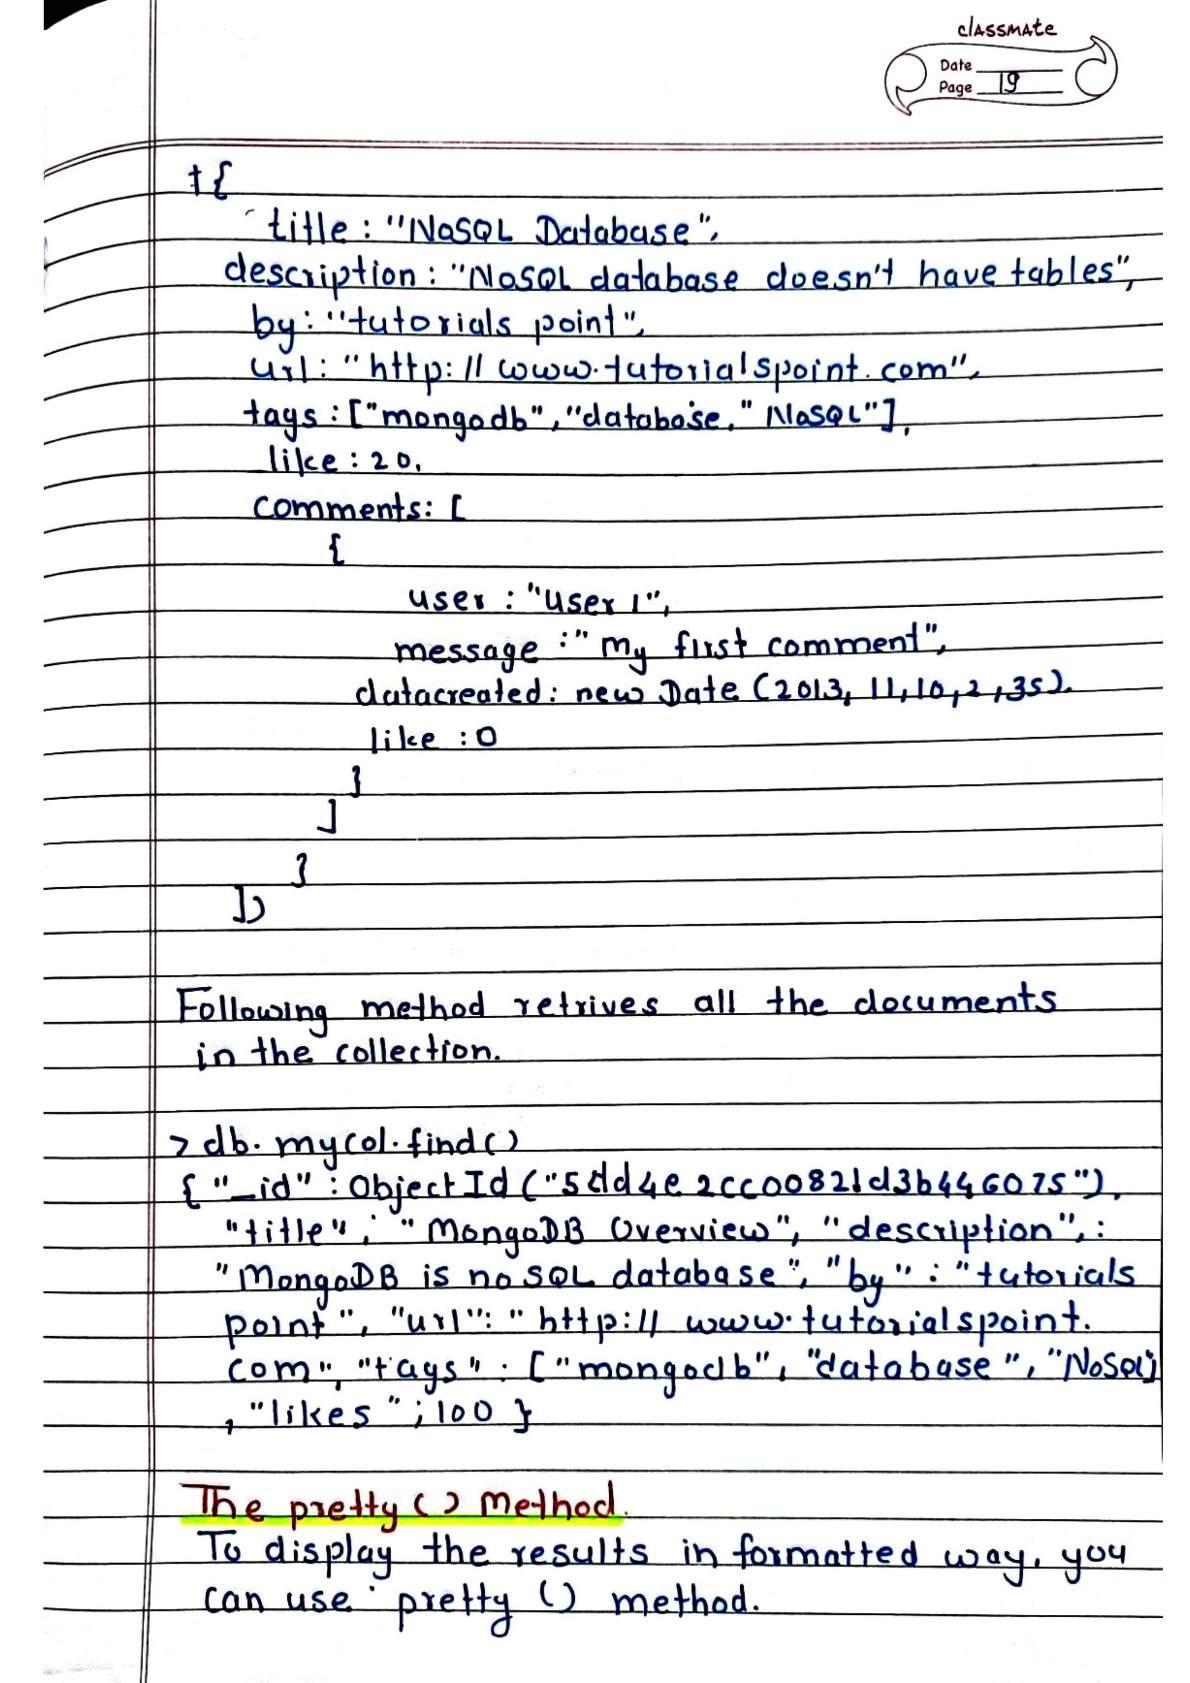 classmate
Date
Page 19
{
title : "NoSQL Database",
description : "NoSQL database doesn't have tables",
by : "tutorials point",
url : "http://www.tutorialspoint.com",
tags : ["mongodb", "database," NoSQL"],
like : 20,
comments: [
{
user : "user 1",
message :" my first comment",
datacreated : new Date (2013, 11,10,2,35),
like : 0
}
]
}
])
Following method retrives all the documents
in the collection.
> db.mycol.find()
{ "_id" : ObjectId ("5dd4e2cc0821d3b446075"),
"title" ; "MongoDB Overview", "description", :
"MongoDB is no SQL database", "by" : "tutorials
point", "url": "http://www.tutorialspoint.
com", "tags" : ["mongodb", "database", "NoSQL]
, "likes" ; 100 }
The pretty () Method.
To display the results in formatted way, you
can use pretty () method.